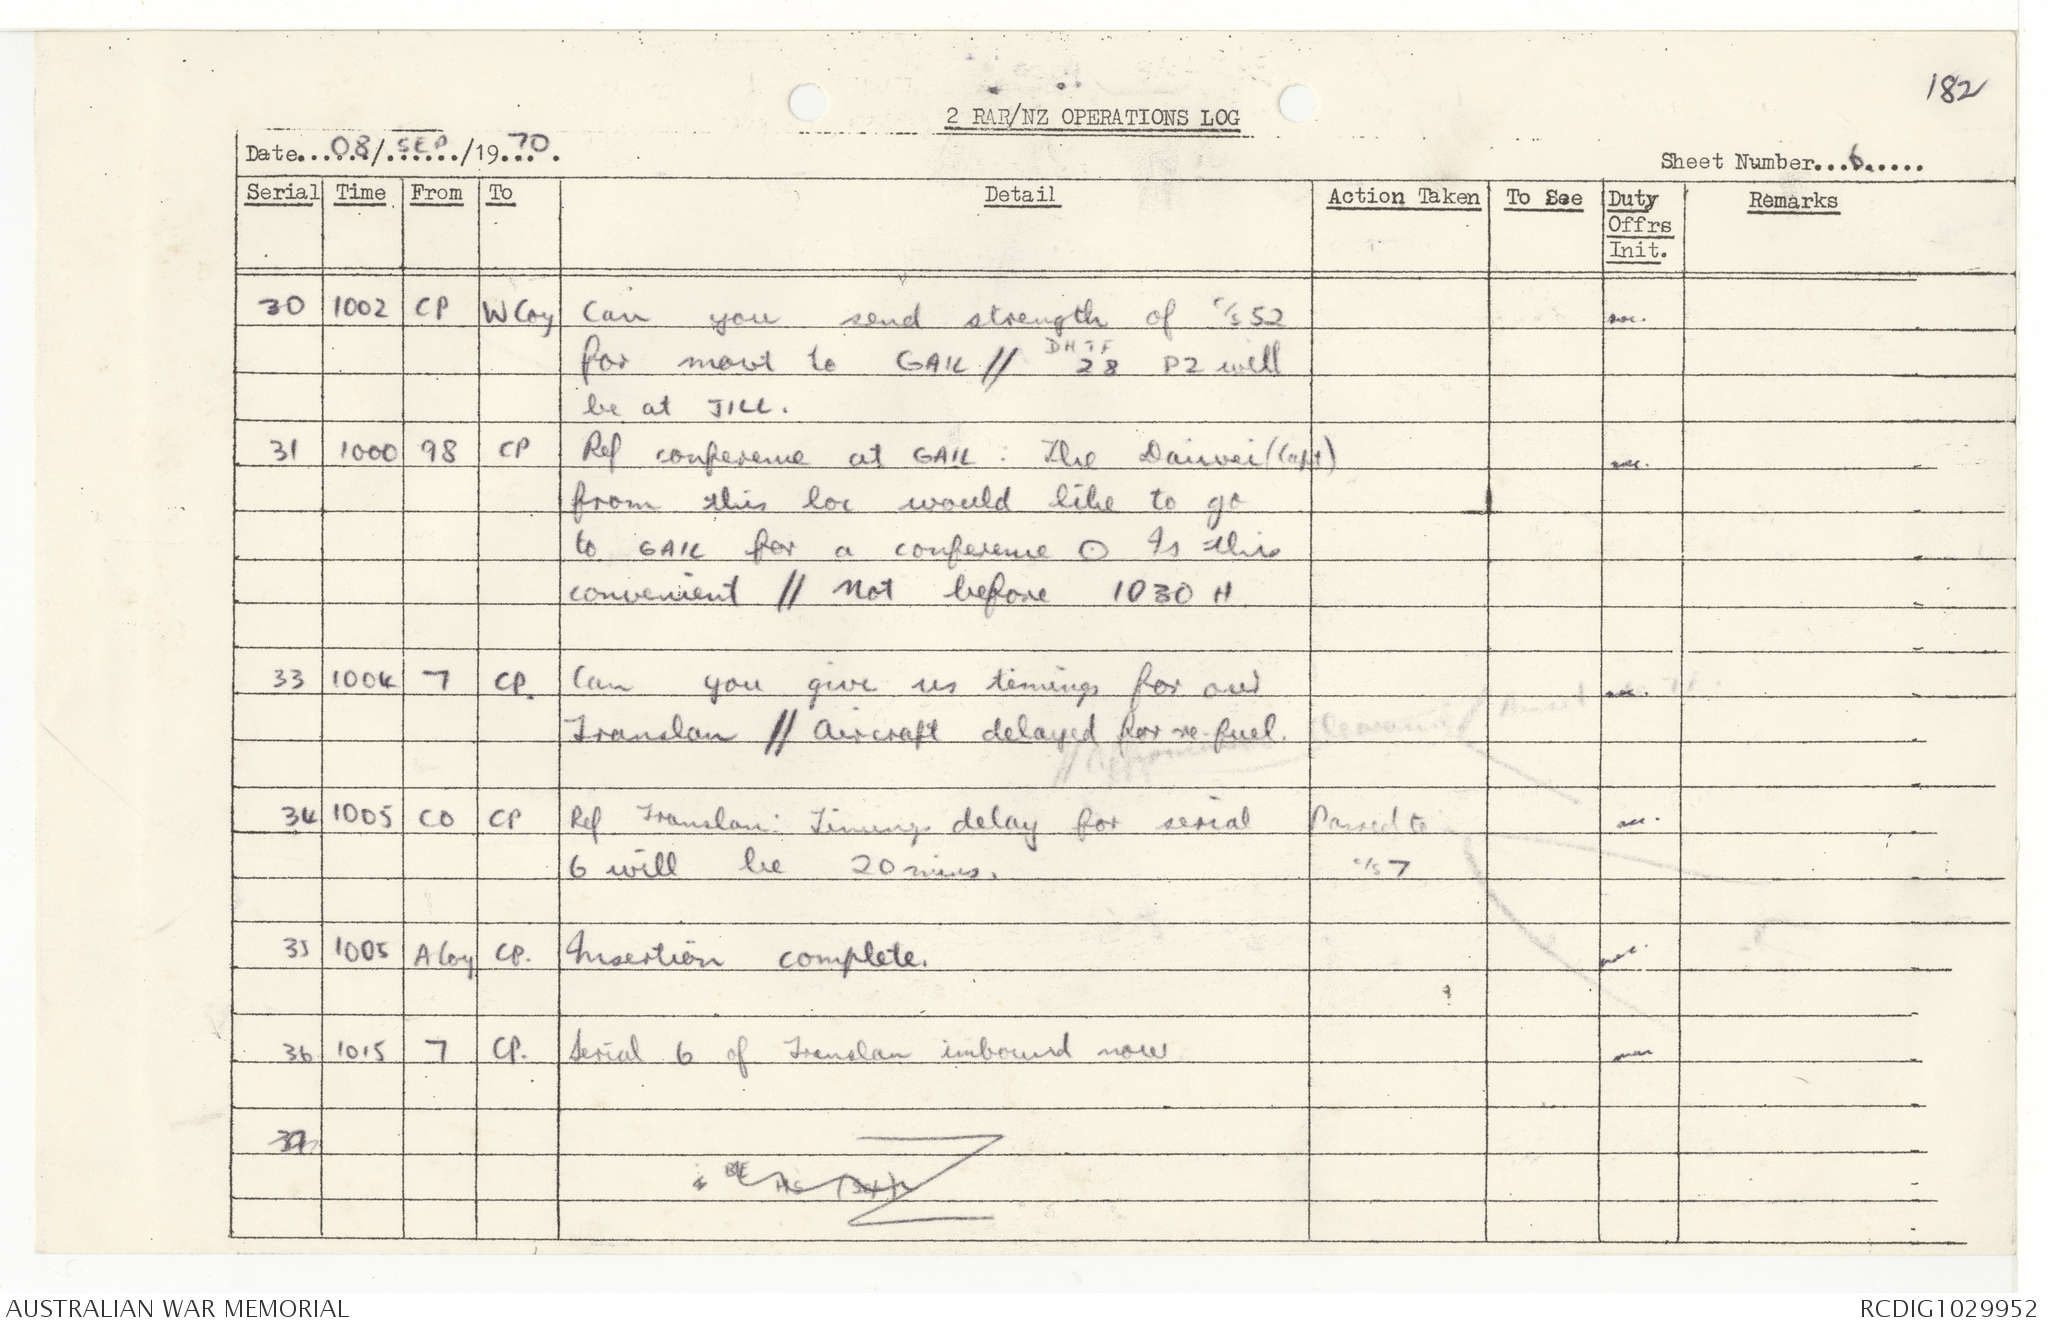 182
2 RAR/NZ OPERATIONS LOG
Date...08/.SEP../19.70.
Sheet Number...6.....
Serial Time From To Detail Action Taken To See Duty Offrs Init. Remarks
30 1002 CP W Coy Can you send strength of c/s 52
for movt to GAIL // DHTF 28 P2 will
be at JILL.
31 1000 98 CP Ref conference at GAIL : The Daiwei (Capt)
from this loc would like to go
to GAIL for a conference O Is this
convenient // Not before 1030 H
33 1004 7 CP. Can you give us timings for our
Translan // Aircraft delayed for re-fuel.
34 1005 CO CP Ref Translan: Timings delay for serial Passed to
6 will be 20 mins. c/s 7
35 1005 A Coy CP. Insertion complete.
36 1015 7 CP. Serial 6 of Translan inbound now
AUSTRALIAN WAR MEMORIAL
RCDIG1029952